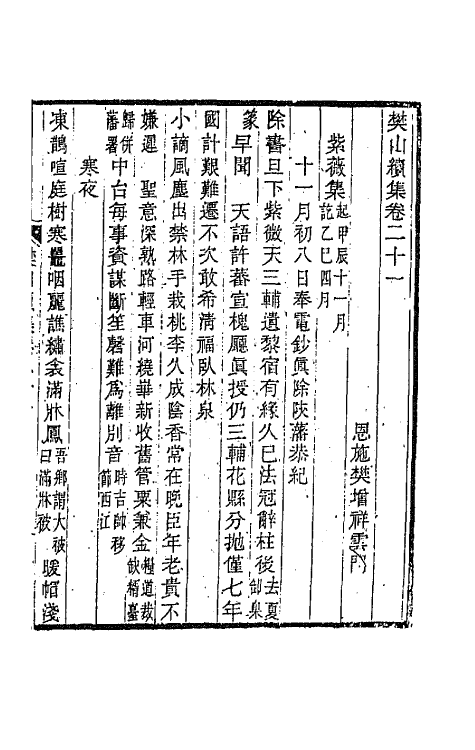 樊山續集卷二十一
恩施樊增祥雲門
紫薇集起甲辰十一月訖乙巳四月
十一月初八日奉電鈔眞除陝藩恭紀
除書旦下紫薇天三輔遺黎宿有緣久已法冠辭柱後去夏卸臬
篆早聞　天語許蕃宣槐廳眞授仍三輔花縣分拋僅七年
國計艱難遷不次敢希淸福臥林泉
小謫風塵出禁林手栽桃李久成陰香常在晚臣年老貴不
嫌遲　聖意深熟路輕車河繞華新收舊管粟兼金糧道裁缺糈臺
歸併藩署中台每事資謀斷笙磬難爲離別音時吉帥移節西江
寒夜
凍鵲喧庭樹寒鼉咽麗譙繡衾滿牀鳳吾鄉謂大被曰滿牀被暖帽淺